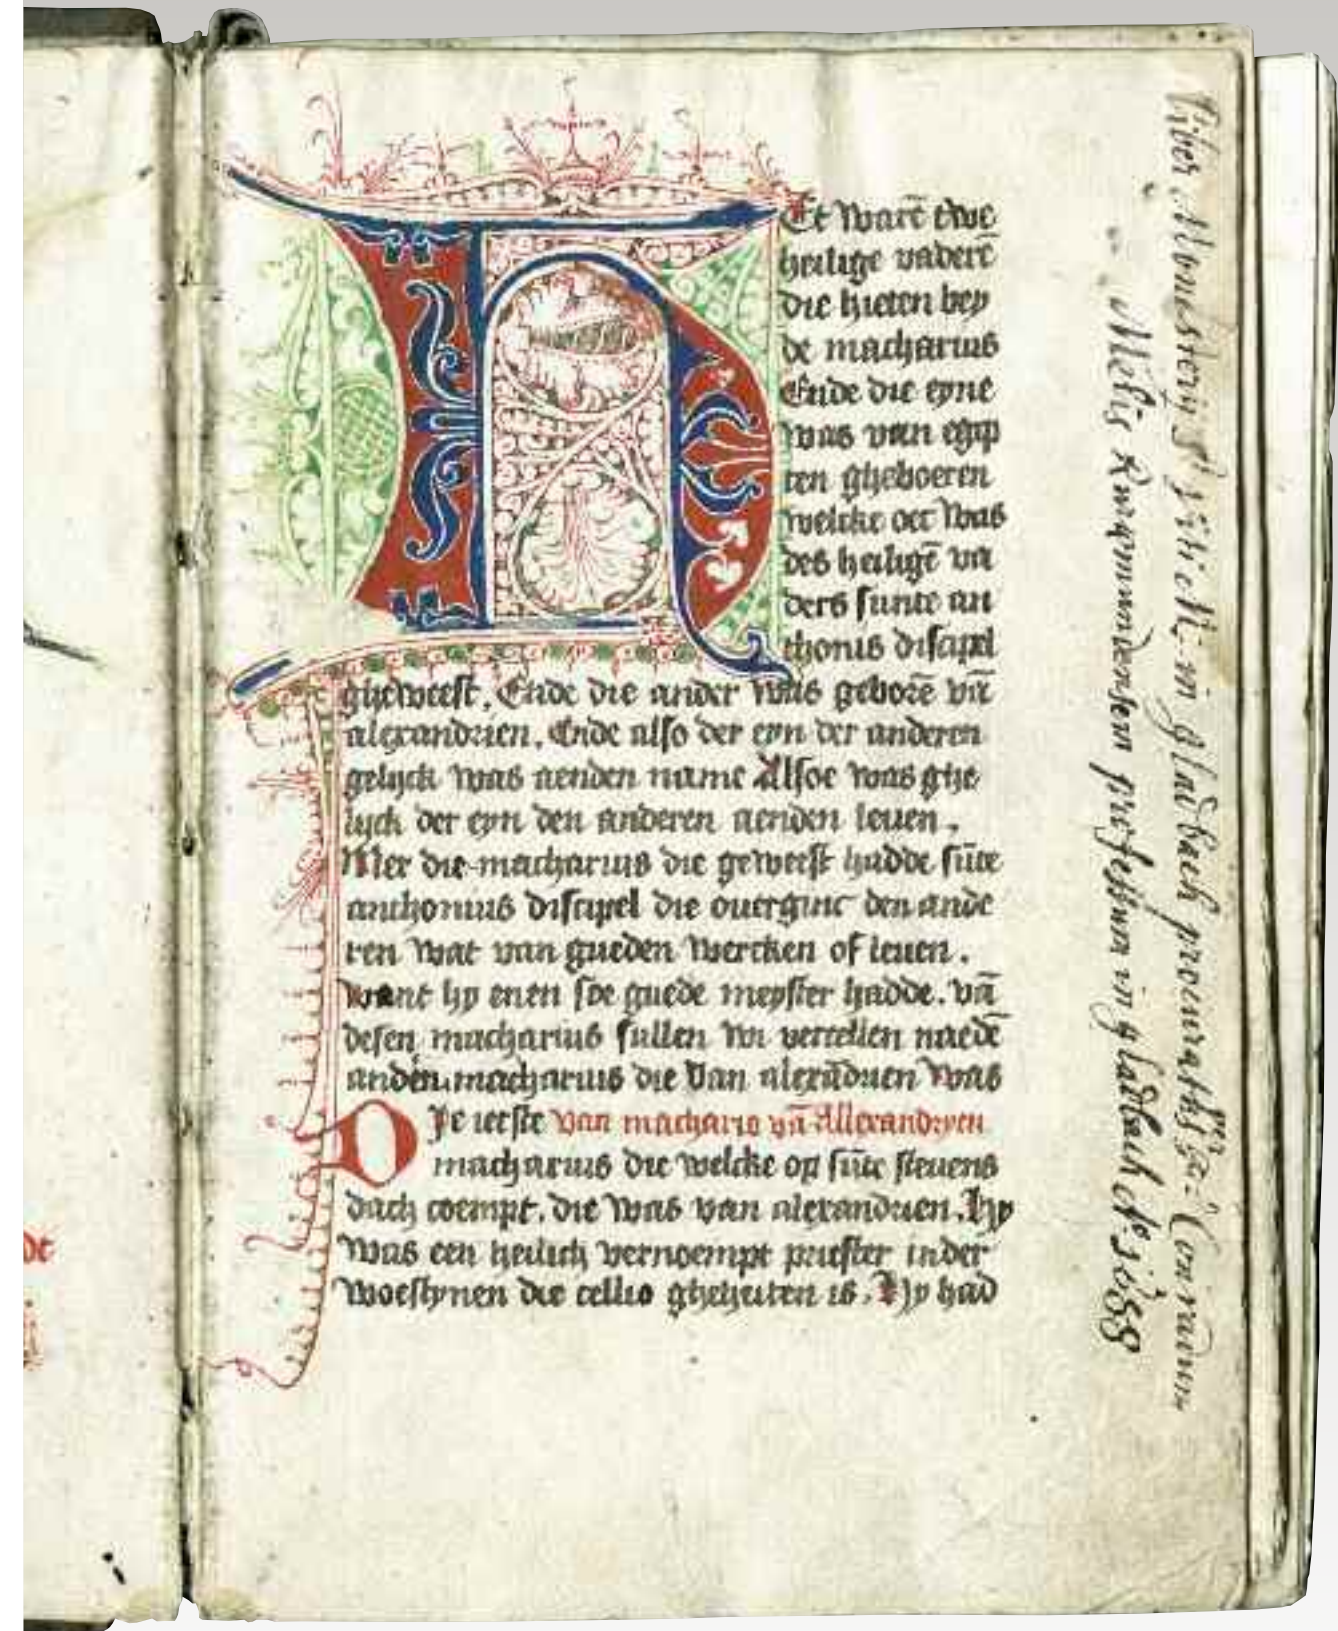 Et warē twe
heilige vaderē
die hieten bey
de macharius
Ende die eyne
was van egip
ten gheboeren
welcke oec was
des heiligē va
ders sunte an
thonis discipel
gheweest. Ende die ander was geborē vā
alexandrien. Ende also der eyn der anderen
gelijck was aenden name Alsoe was ghe
lijck der eyn den anderen aenden leuen.
Mer die macharius die geweest hadde sūte
anthonius discipel die ouerginc den ande
ren wat van gueden wercken of leuen.
want hy enen soe guede meyster hadde. vā
desen macharius sullen wi vertellen naedē
anden macharius die van alexādrien was
Die ierste van machario vā Allexandryen
macharius die welcke op sūte steuens
dach coempt. die was van alexandrien. Hy
was een heilich vernoempt priester inder
woestynen die cellio gheheiten is. Hy had
Liber Monasterij Sti viti in gladbach procurat per Conradum
Melis Ruremundensem professum in gladbach
de